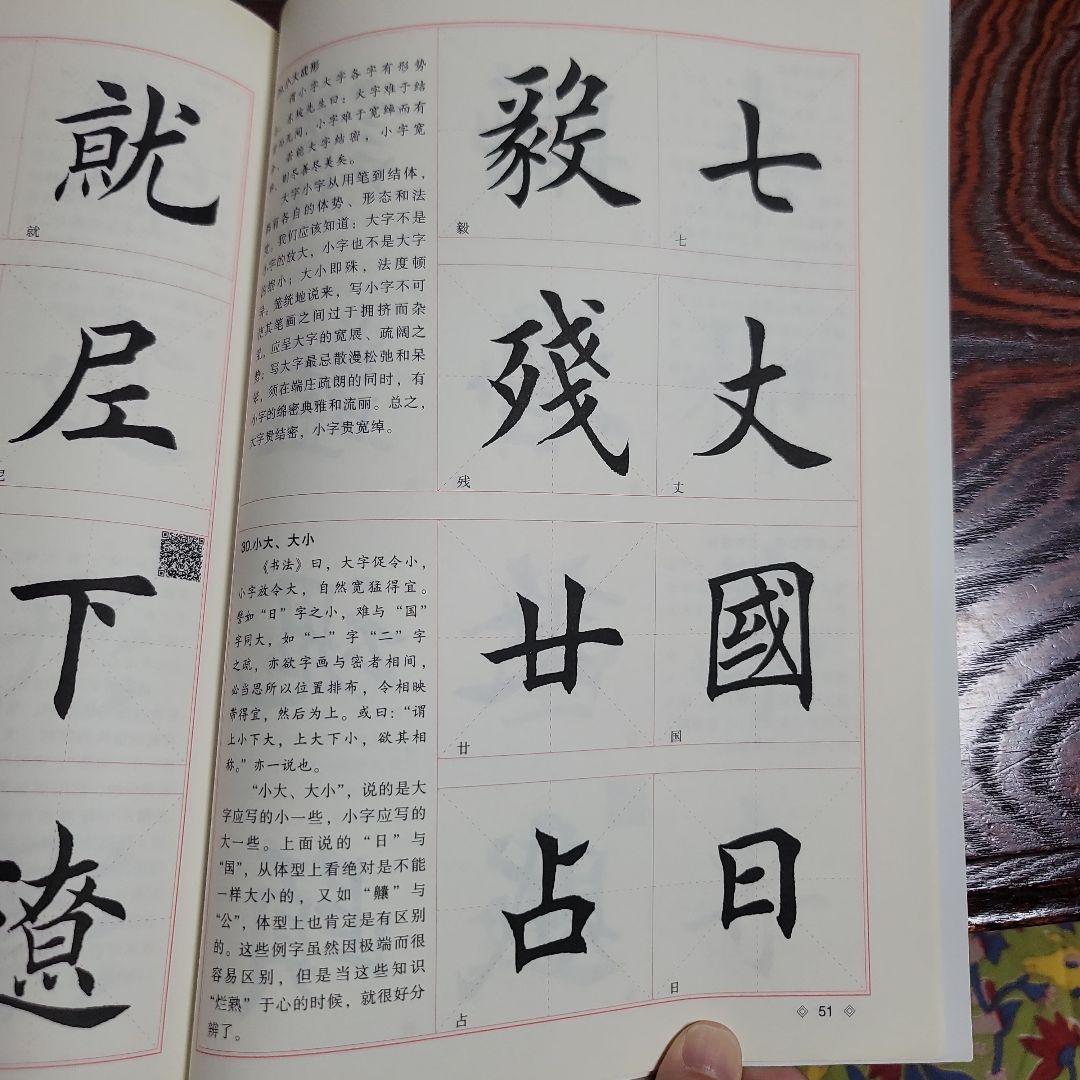 就
就
尼
下
遼
小大成形
谓小字大字各字有形势
先生曰：大字难于结
无间，小字难于宽绰而有
若能大字结密，小字宽
则尽善尽美矣。
大字小字从用笔到结体，
有各自的体势、形态和法
我们应该知道：大字不是
小字的放大，小字也不是大字
缩小；大小即殊，法度顿
笼统地说来，写小字不可
其笔画之间过于拥挤而杂
应呈大字的宽展、疏阔之
势；写大字最忌散漫松弛和呆
须在端庄疏朗的同时，有
小字的绵密典雅和流丽。总之，
大字贵结密，小字贵宽绰。
毅
毅
七
七
殘
残
丈
丈
30.小大、大小
《书法》曰，大字促令小，
小字放令大，自然宽猛得宜。
譬如“日”字之小，难与“国”
字同大，如“一”字“二”字
之疏，亦欲字画与密者相间，
必当思所以位置排布，令相映
带得宜，然后为上。或曰：“谓
上小下大，上大下小，欲其相
称。”亦一说也。
“小大、大小”，说的是大
字应写的小一些，小字应写的
大一些。上面说的“日”与
“国”，从体型上看绝对是不能
一样大小的，又如“
”与
“公”，体型上也肯定是有区别
的。这些例字虽然因极端而很
容易区别，但是当这些知识
“烂熟”于心的时候，就很好分
辨了。
廿
廿
國
国
占
占
日
日
51